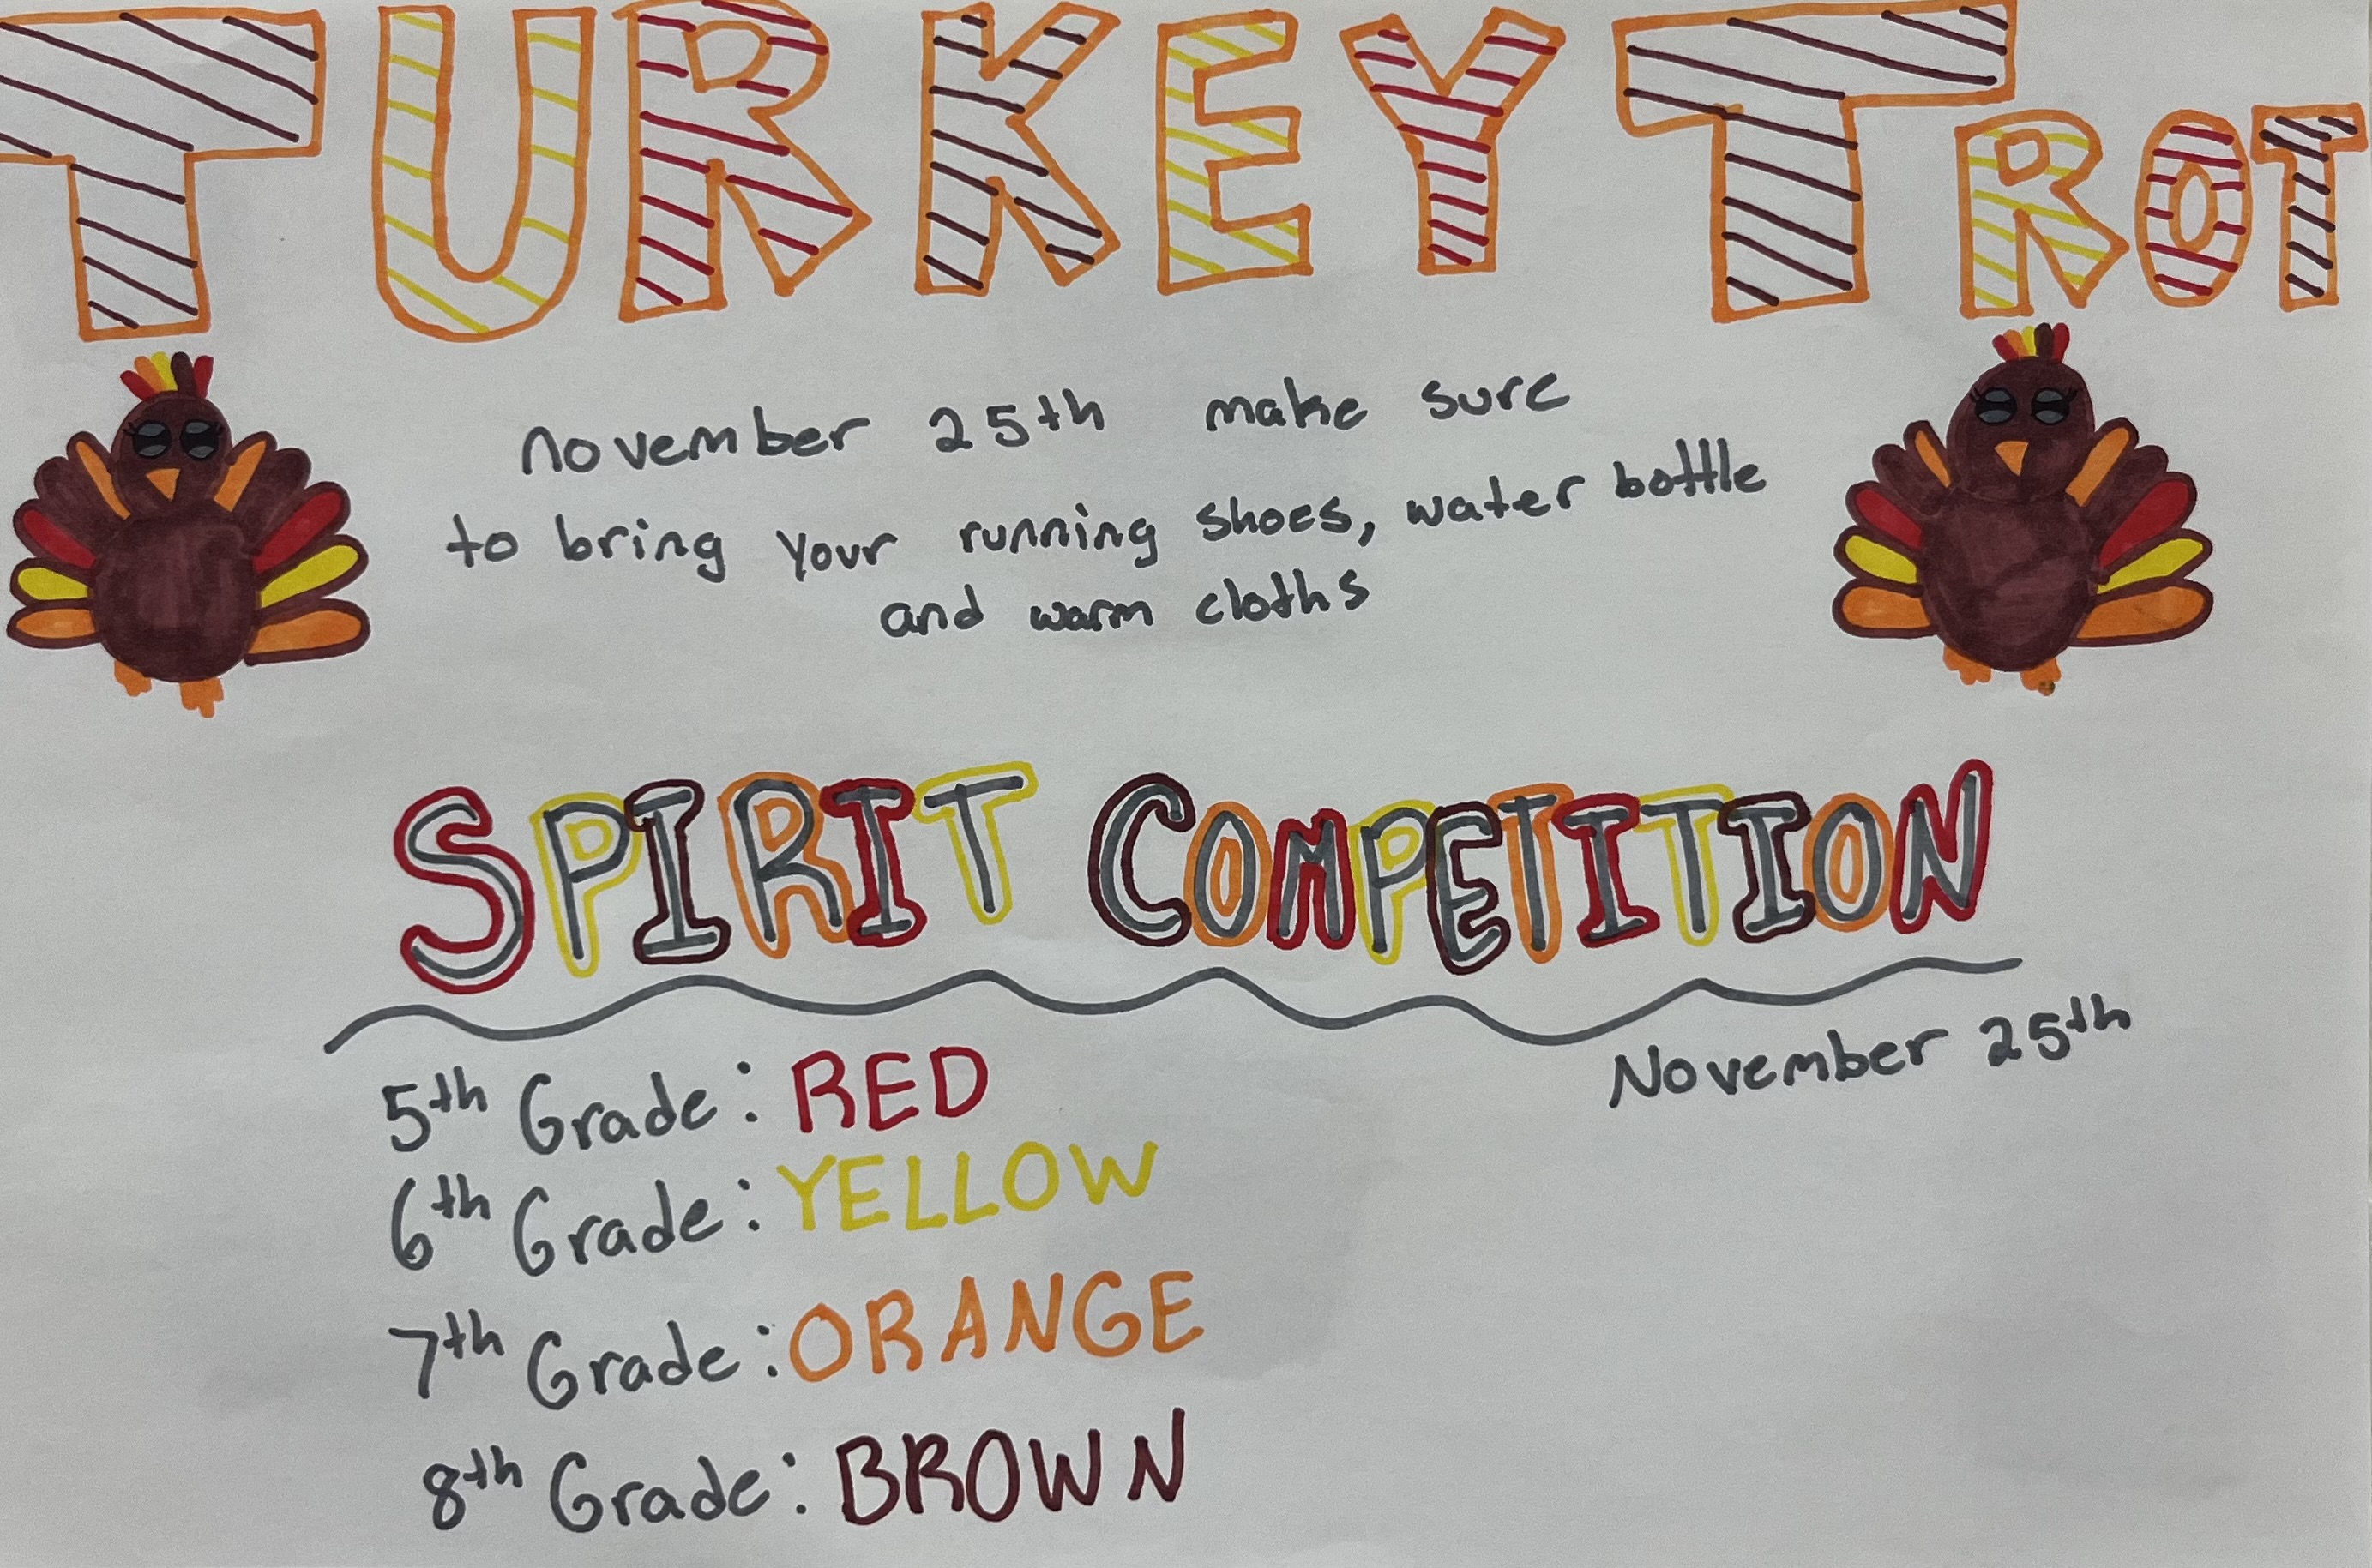 TURKEY TROT
november 25th make sure
to bring your running shoes, water bottle
and warm cloths
SPIRIT COMPETITION
November 25th
5th Grade: RED
6th Grade: YELLOW
7th Grade: ORANGE
8th Grade: BROWN